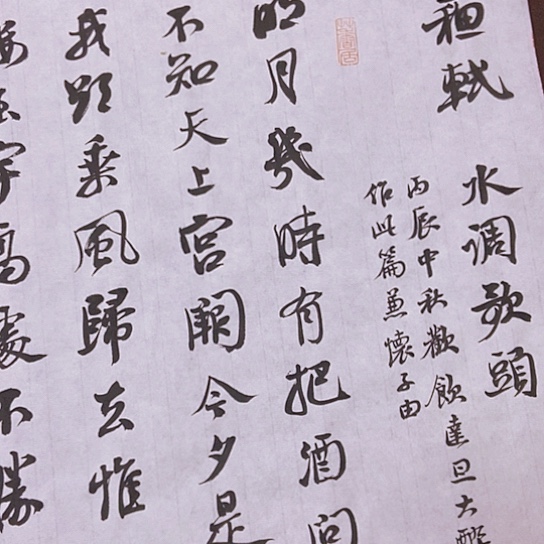 軾 水調歌頭
丙辰中秋歡飲達旦大醉
作此篇兼懷子由
明月幾時有把酒問
不知天上宮闕今夕是
我欲乘風歸去惟
樓玉宇高處不勝